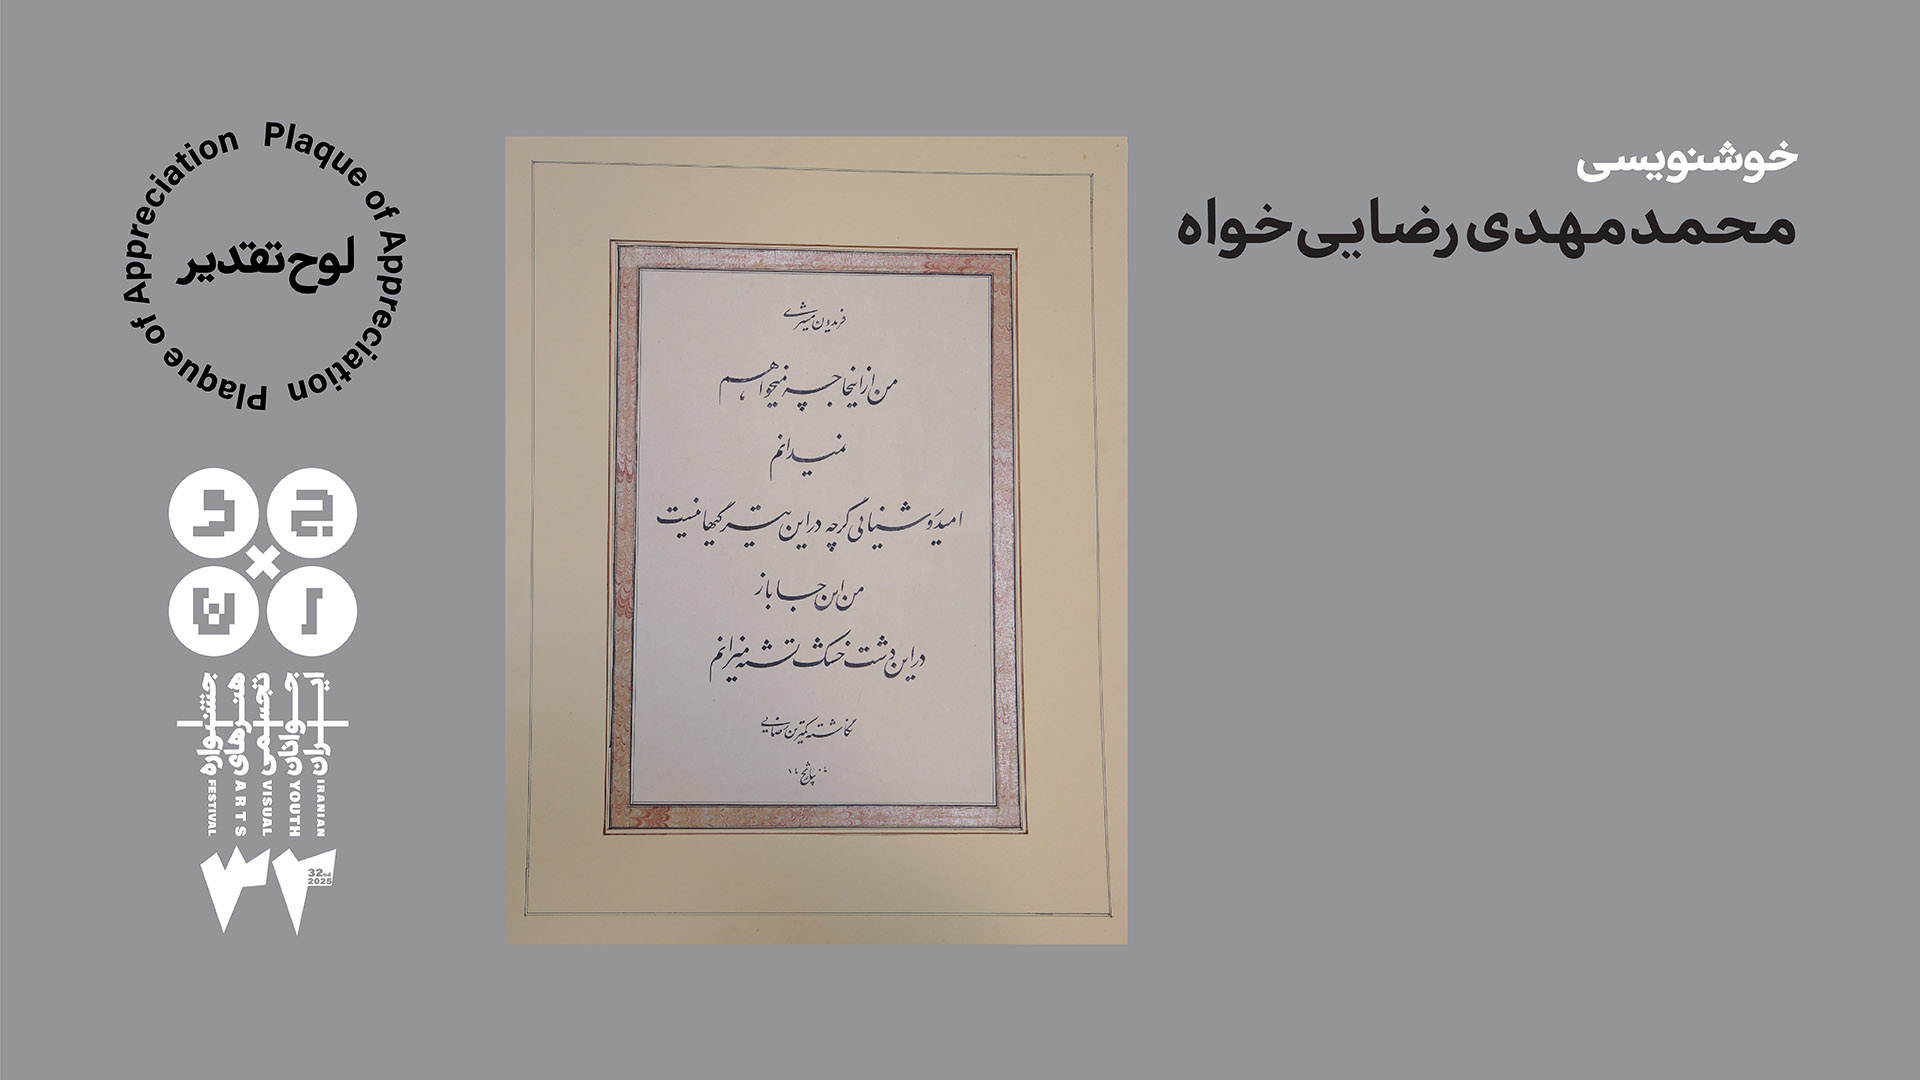 خوشنویسی
محمدمهدی رضایی‌خواه
Plaque of Appreciation Plaque of Appreciation
لوح تقدیر
فریدون مشیری
من از اینجا چه میخواهم
نمیدانم
امید روشنیایی گرچه در این تیرگیها نیست
من این جا باز
در این دشت خشک تشنه میرانم
نگاشته کمترین رضایی
ج و
ا ن
جشنواره
هنرهای
تجسمی
جوانان
ایران
FESTIVAL
ARTS
VISUAL
YOUTH
IRANIAN
۳۲
32nd
2025